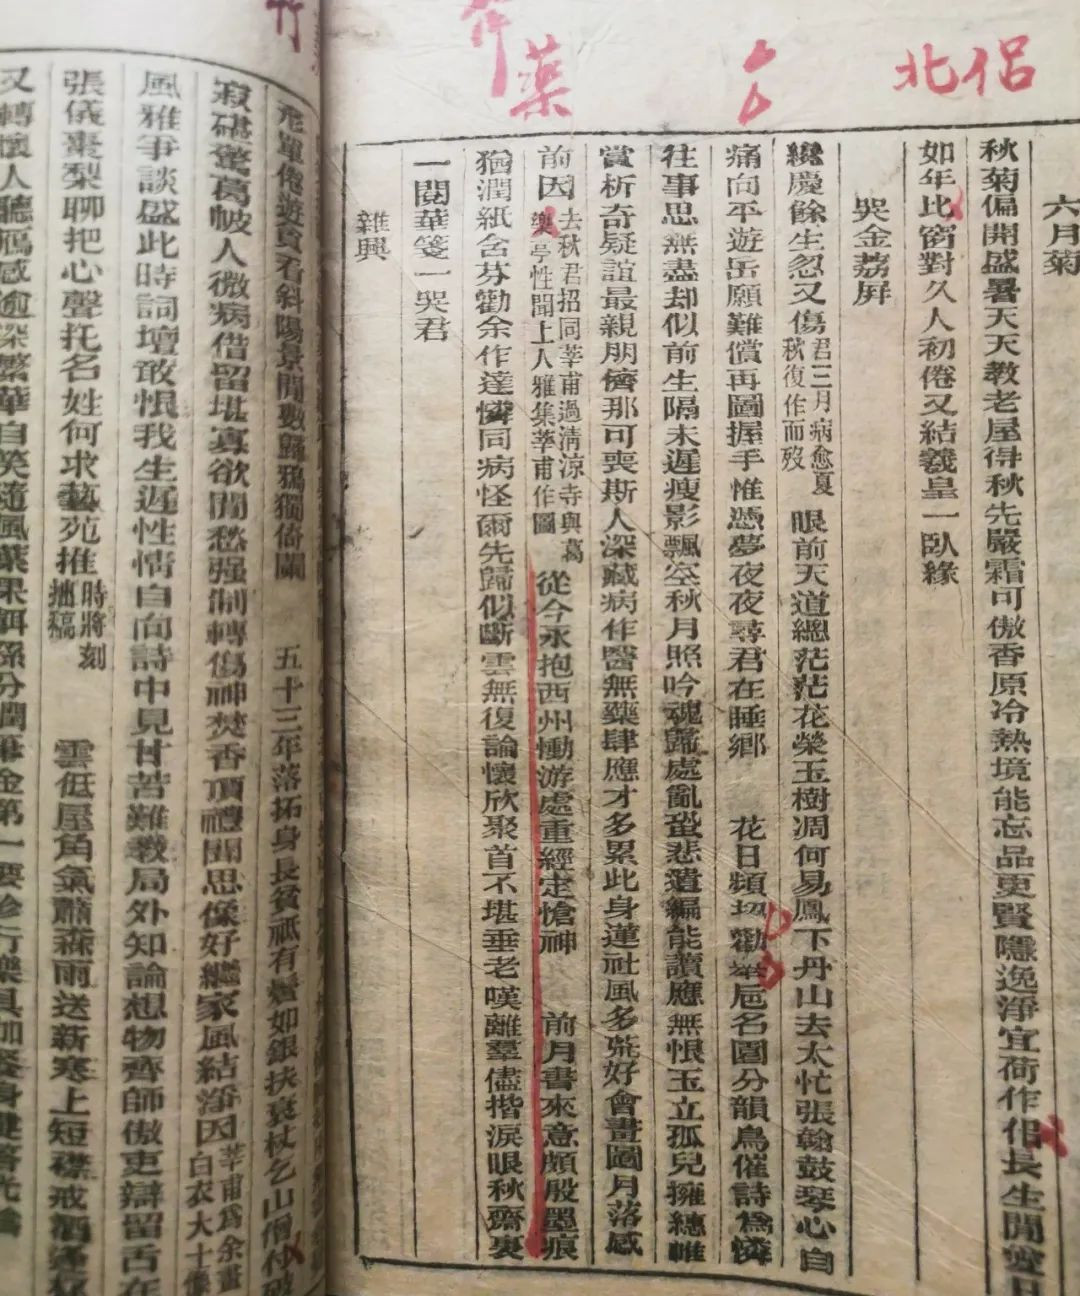 北侶
藥
竹
六月菊
秋菊偏開盛暑天天教老屋得秋先嚴霜可傲香原冷熱境能忘品更賢隱逸淨宜荷作侶長生閒愛日
如年比窗對久人初倦又結羲皇一臥緣
哭金荔屏
纔慶餘生忽又傷君三月病愈夏秋復作而歿眼前天道總茫茫花榮玉樹凋何易鳳下丹山去太忙張翰鼓琴心自
痛向平遊岳願難償再圖握手惟憑夢夜夜尋君在睡鄉 花日頻切勸舉巵名園分韻鳥催詩為憐
往事思無盡却似前生隔未遲瘦影飄空秋月照吟魂歸處亂蛩悲遺編能讀應無恨玉立孤兒擁繐帷
賞析奇疑誼最親朋儕那可喪斯人深藏病作醫無藥肆應才多累此身蓮社風多荒好會畫圖月落感
前因去秋君招同莘甫過清涼寺與葛樂亭性聞上人雅集莘甫作圖從今永抱西州慟游處重經定愴神 前月書來意頗殷墨痕
猶潤紙含芬勸余作達憐同病怪爾先歸似斷雲無復論懷欣聚首不堪垂老嘆離羣儘揩淚眼秋齋裏
一閱華箋一哭君
雜興
飛單倦遊貧看斜陽景閒數歸鴉獨倚闌 五十三年落拓身長貧祇有鬢如銀扶衰杖乞山僧付破
寂硯驚葛帔人微病借留堪寡欲閒愁强制轉傷神焚香頂禮閒思像好繼家風結淨因莘甫為余畫白衣大士像
風雅爭談盛此時詞壇敢恨我生遲性情自向詩中見甘苦難教局外知論想物齊師傲吏辯留舌在
張儀棗梨聊把心聲托名姓何求藝苑推時將刻拙稿雲低屋角氣蕭森雨送新寒上短襟戒酒逢
又轉懷人聽雁感逾深繁華自笑隨風葉果餌孫分潤筆金第一要珍行樂具加餐身健答光陰